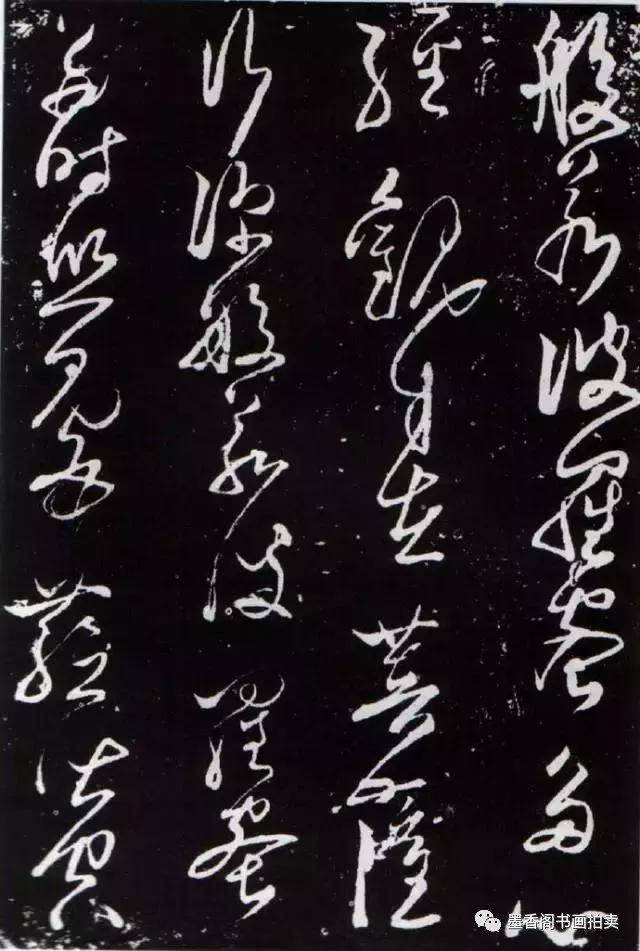 般若波羅蜜多心
經觀自在菩薩
行深般若波羅蜜
多時照見五蘊皆空
墨香阁书画拍卖